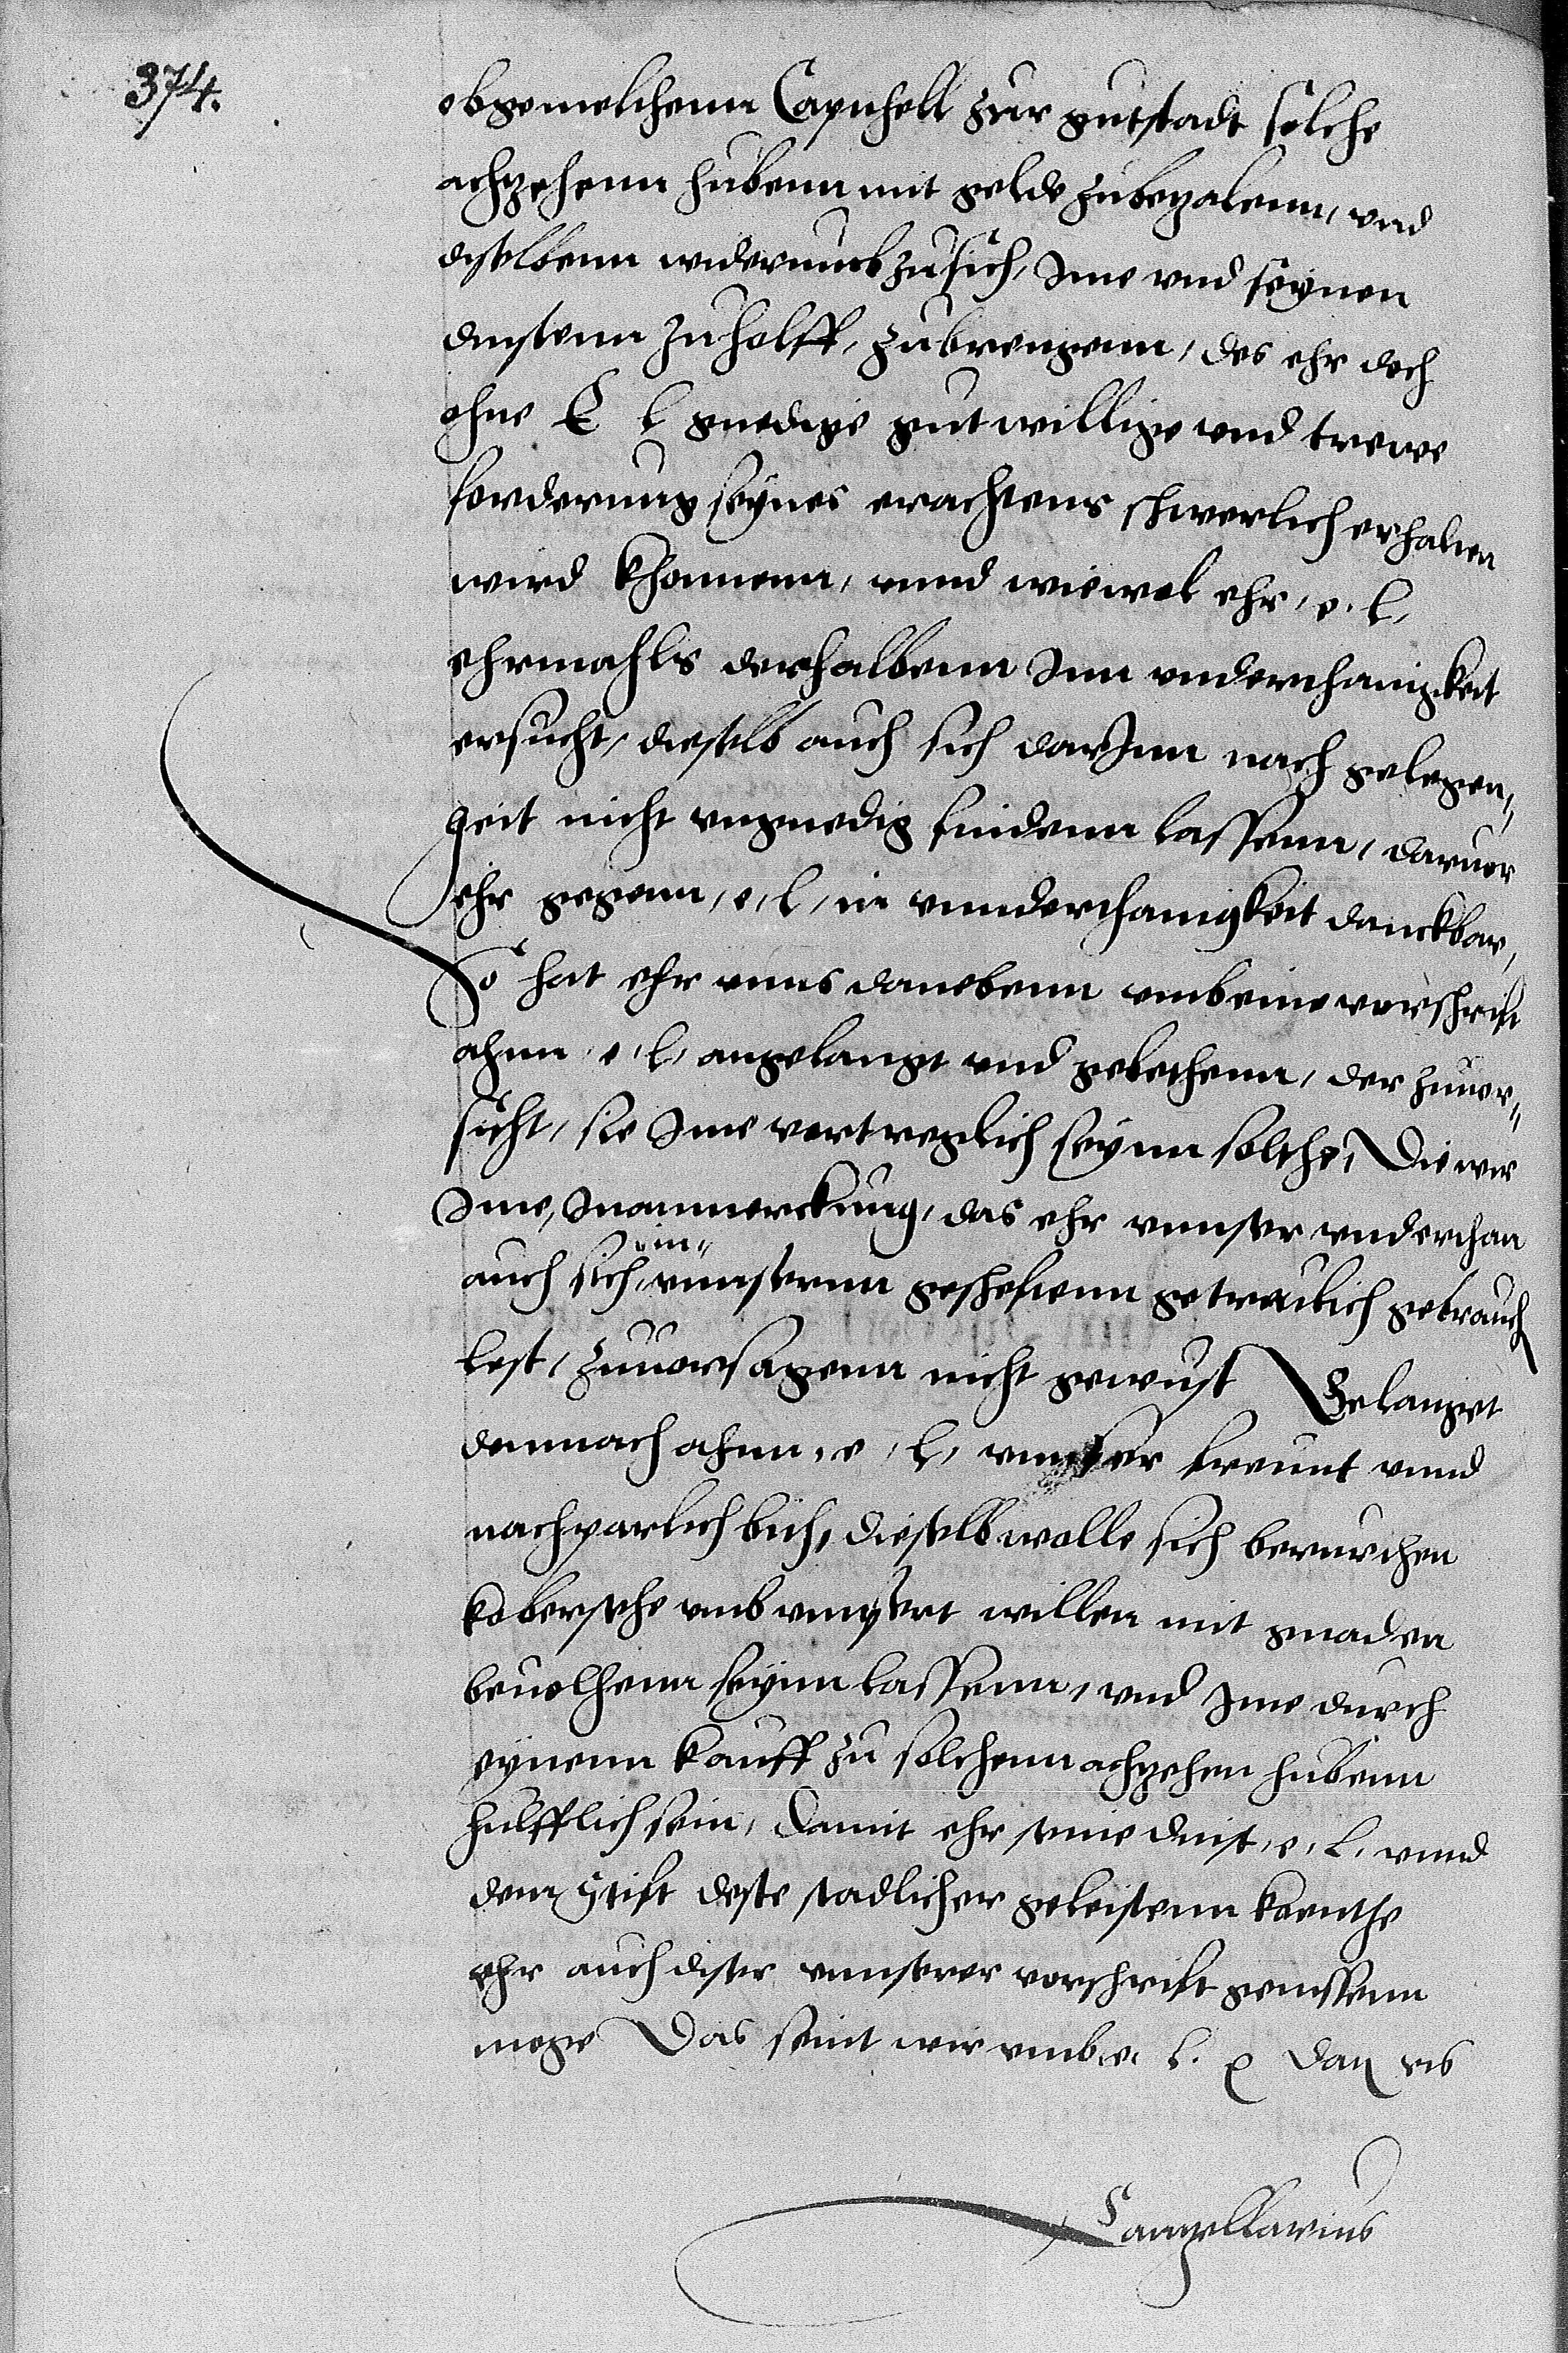 374.
obgemelthenn Capithell zur gutstadt solche
achtzehenn hubenn mit gelde zubezalenn, vnd
dieselbenn widerumb zu sich, Ime vnd seynen
dinstenn zu holff, zubrengenn, des ehr doch
ohne E L gnedige gutwillige vnd trewe
forderung seynes erachtens schwerlich erhalten
wird khonnenn, vnnd wiewol ehr, e. l,
ehrmahls derhalbenn Inn vnderthanigkeit
ersucht, dieselb auch sich darInn nach gelegen,,
heit nicht vngnedig findenn lassenn, daruor
ehr gegenn, e, l, in vnnderthanigkeit danckbar,
So hat ehr vnns danebenn umb eine vorschrift
ahnn, e, l, angelangt vnd gebethenn, der zuuor,,
sicht, sie Ime vortreglich seynn solthe, Die wir
Ime, Inannmerckung, das ehr vnnser vnderthan
auch sich in,, vnnsernn gescheftenn getreulich gebrauch
lest, zuuorsagenn nicht gewust Gelanget
demnach ahnn, e, l, vnnser freunt vnnd
nachparlich bith, dieselb wolle sich berurthen
kobersehe vmb vnnsert willen mit gnaden
beuolhenn seynn lassenn, vnd Ime durch
eynenn kauff zu solchenn achtzehen hubenn
hulfflich sein, Damit ehr seine dinst, e, l, vnnd
dem Stift deste stadlicher geleistenn konthe
ehr auch diser vnnserer vorschrift genissenn
moge Das seint wir vmb e. l. Dat vts
Cantzellarius